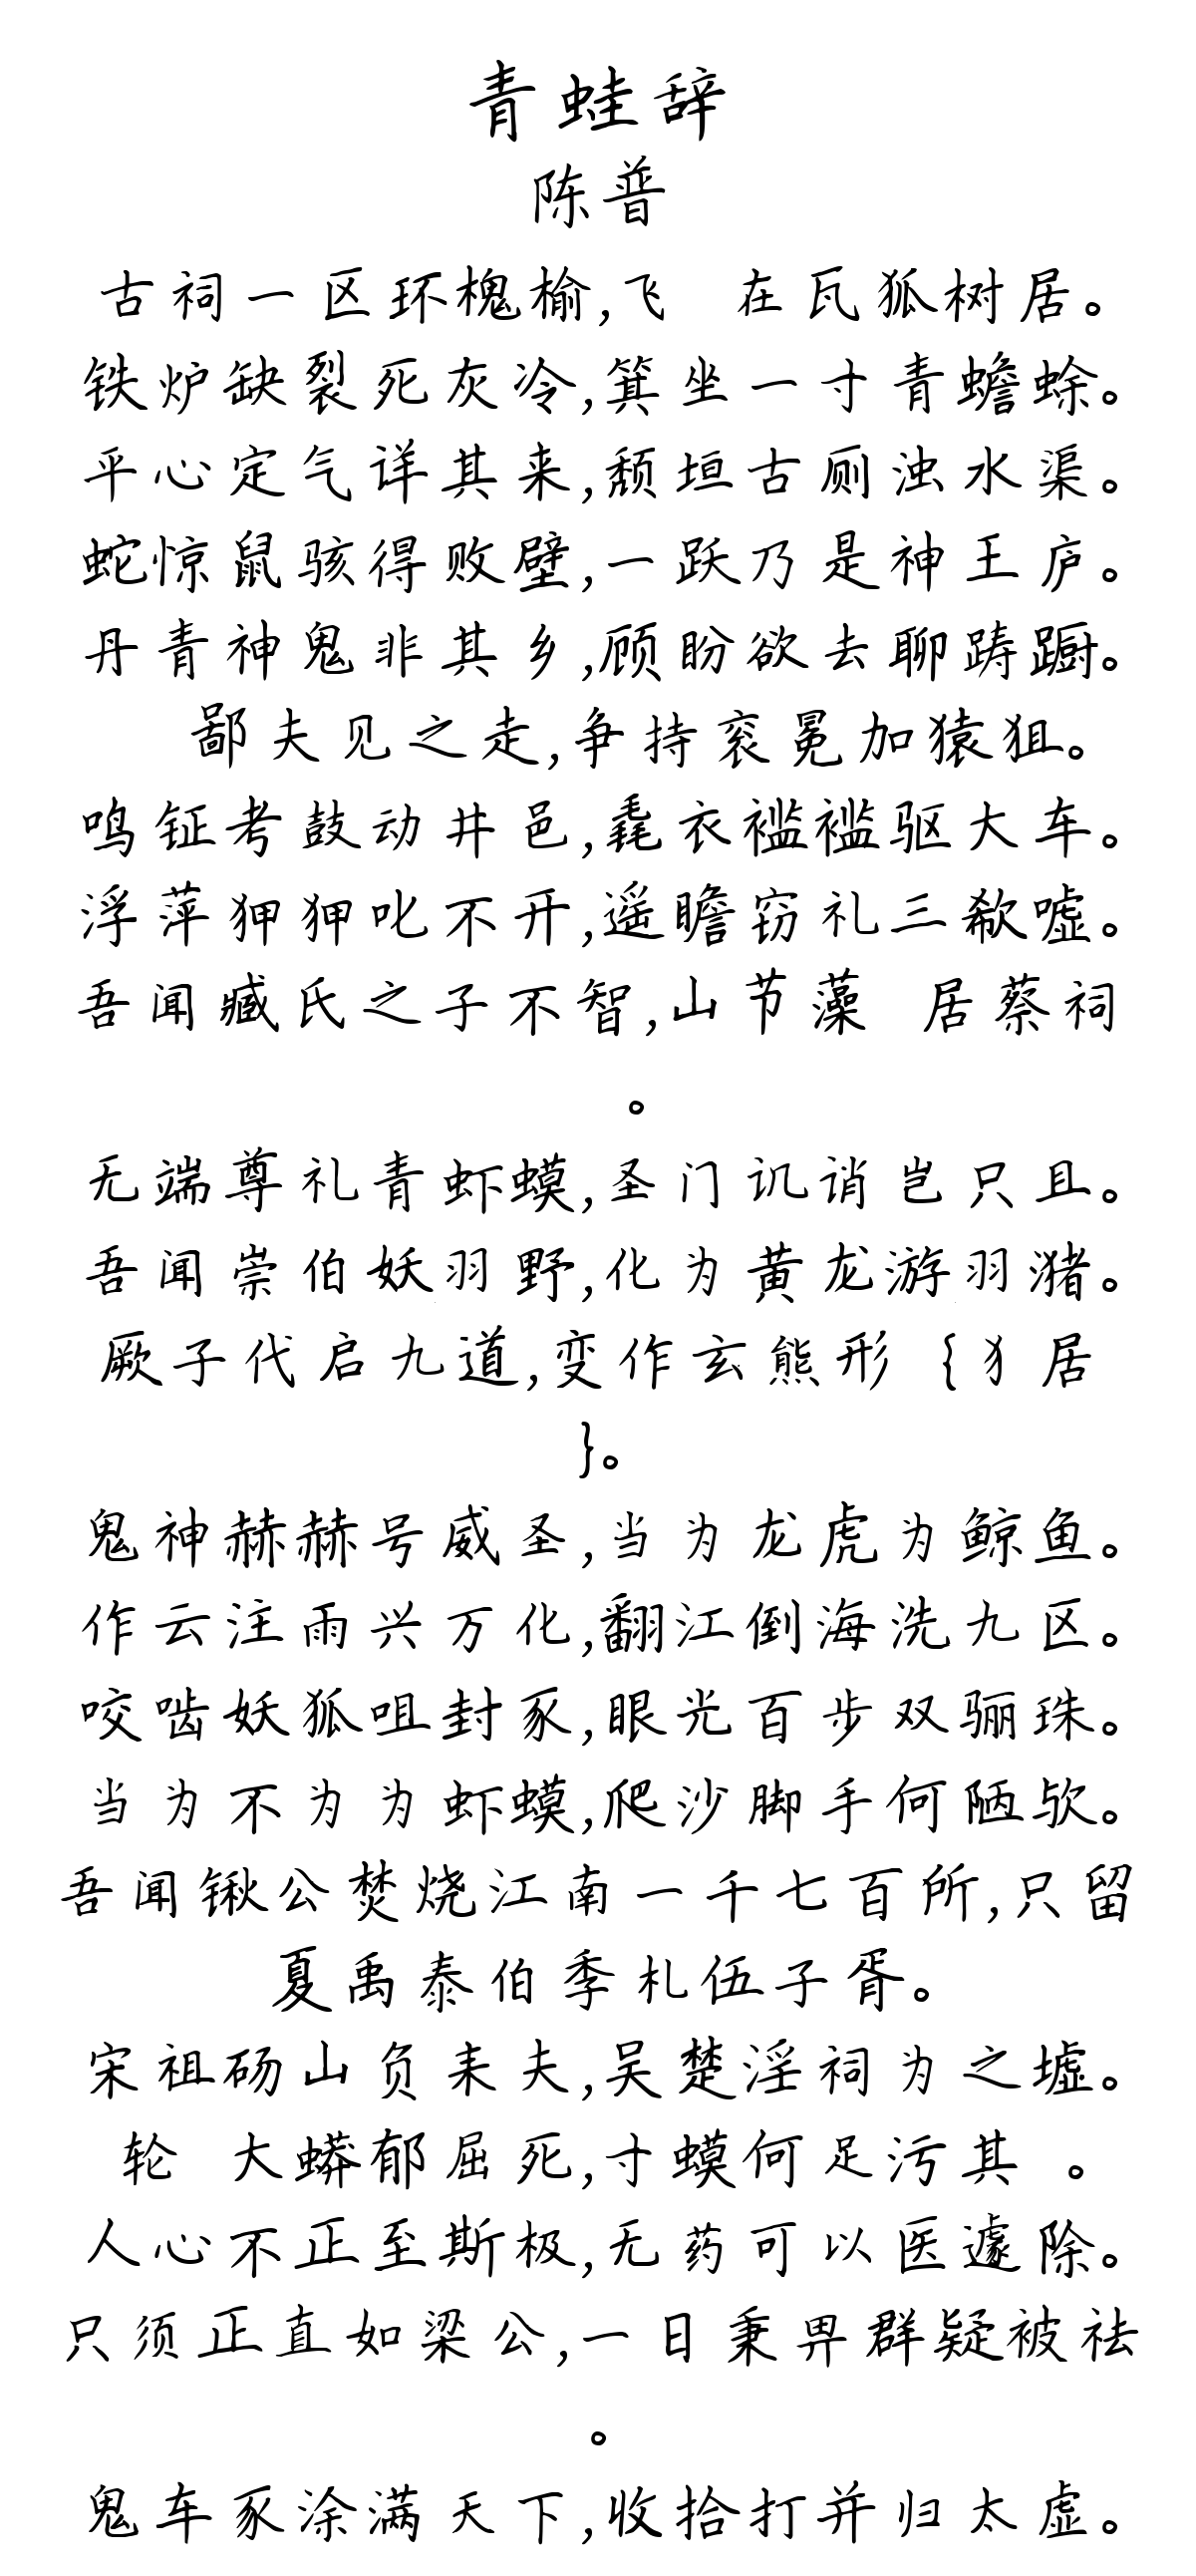 青蛙辞
陈普
古祠一区环槐榆,飞 在瓦狐树居。
铁炉缺裂死灰冷,箕坐一寸青蟾蜍。
平心定气详其来,颓垣古厕浊水渠。
蛇惊鼠骇得败壁,一跃乃是神王庐。
丹青神鬼非其乡,顾盼欲去聊踌蹰。
鄙夫见之走,争持衮冕加猿狙。
鸣钲考鼓动井邑,毳衣褴褴驱大车。
浮萍狎狎叱不开,遥瞻窃礼三欷嘘。
吾闻臧氏之子不智,山节藻 居蔡祠
。
无端尊礼青虾蟆,圣门讥诮岂只且。
吾闻崇伯妖羽野,化为黄龙游羽潴。
厥子代启九道,变作玄熊形 {犭居
}。
鬼神赫赫号威圣,当为龙虎为鲸鱼。
作云注雨兴万化,翻江倒海洗九区。
咬啮妖狐咀封豕,眼光百步双骊珠。
当为不为为虾蟆,爬沙脚手何陋欤。
吾闻锹公焚烧江南一千七百所,只留
夏禹泰伯季札伍子胥。
宋祖砀山负耒夫,吴楚淫祠为之墟。
轮 大蟒郁屈死,寸蟆何足污其 。
人心不正至斯极,无药可以医遽除。
只须正直如梁公,一日秉畀群疑被祛
。
鬼车豕涂满天下,收拾打并归太虚。